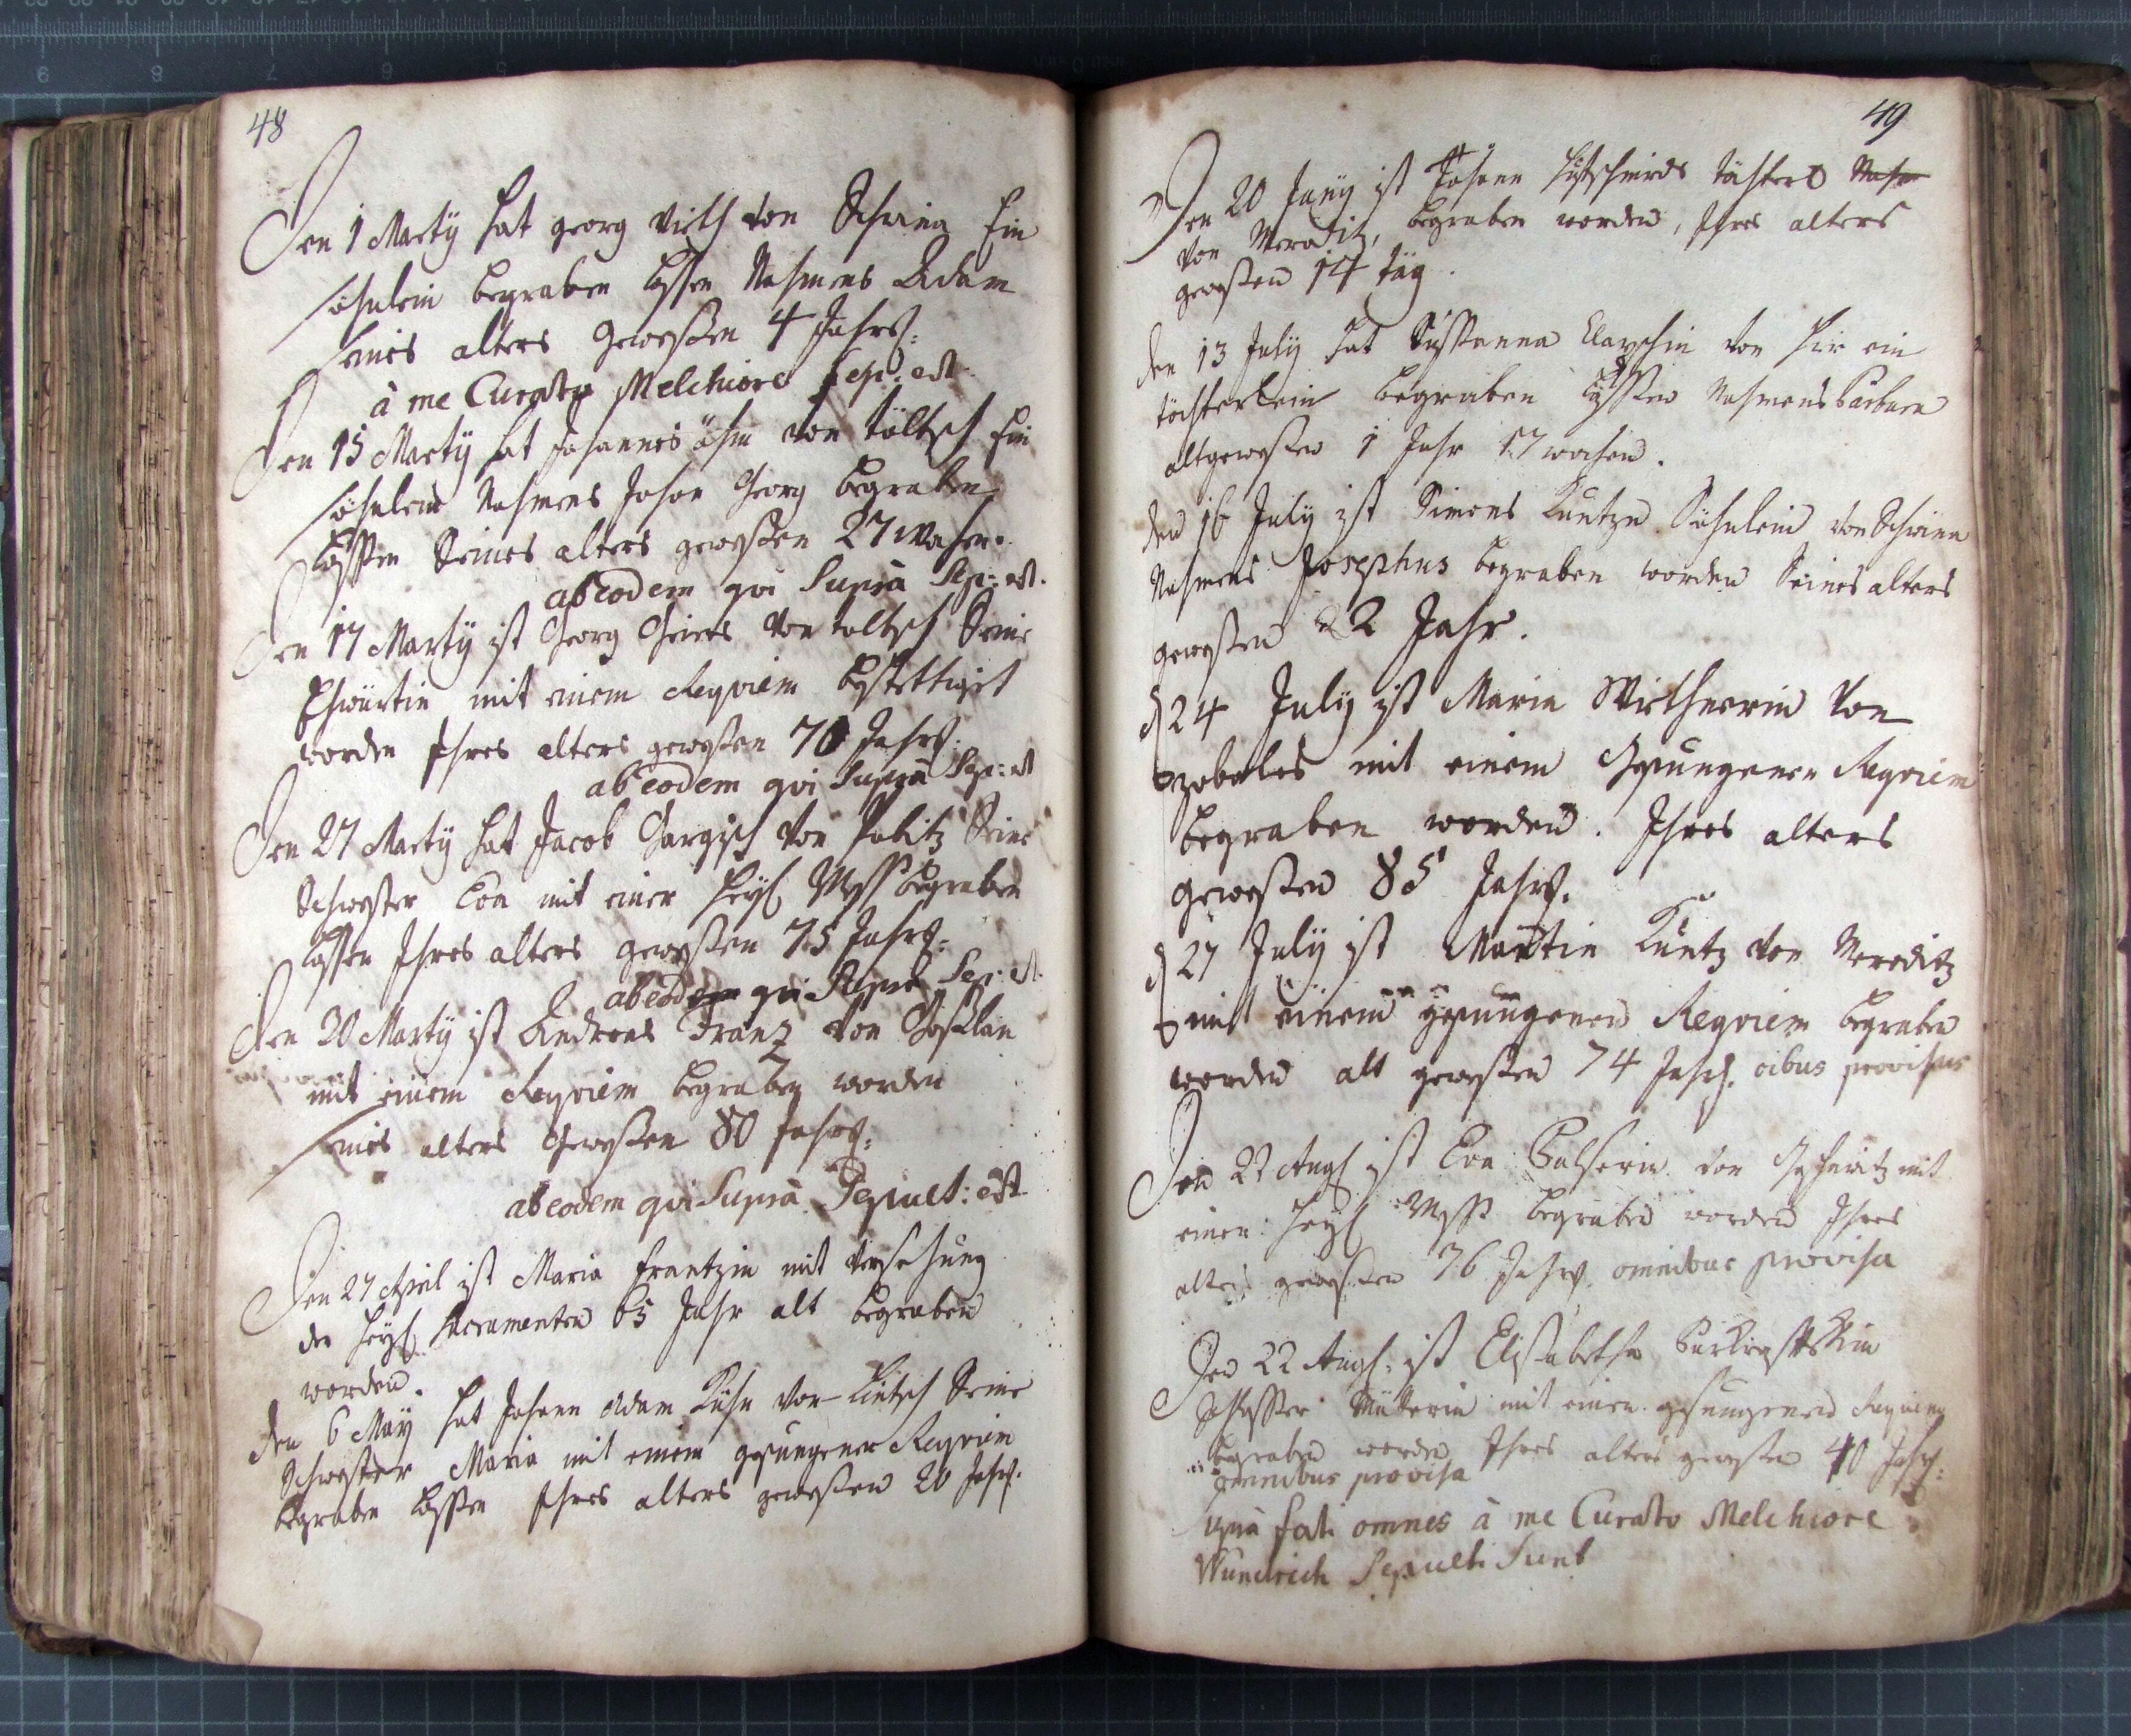 48
Den 1 Martÿ hat georg Vieth von Schrina Ein
söhnlein begraben lassen Nahmens Adam
seines alters Gewessen 4 Jahrs:
à me Curato Melchiore Sep: est
Den 15 Martÿ hat Johannes öhm von töltsch Ein
söhnlein Nahmens Johan Georg begraben
lassen Seines alters gewessen 27 wochen.
ab eodem qvi Suprà Sep: est.
Den 17 Martÿ ist Georg von toltsch Seine
Ehwürtin mit einem Reqviem bestettiget
worden Ihres alters gewessen 70 Jahrs.
ab eodem qvi Suprà Sep: est
Den 27 Martÿ hat Jacob von Pobitz Seine
Schwester Eva mit einer Heÿl Mess begraben
lassen Ihres alters gewessen 75 Jahrs:
ab eodem qvi Supra Sep: est.
Den 30 Martÿ ist Andreas Franz von
mit einem Reqviem begraben worden
seines alters Gewessen 80 Jahrs:
ab eodem qvi Suprà Sepult: est
Den 27 April ist Maria Frantzin mit versehung
der Heÿl Sacramenten 65 Jahr alt begraben
worden.
den 6 Maÿ hat Johann Adam Kuhn von Seine
Schwester Maria mit einem gesungener Reqviem
begraben lassen Ihres alters gewessen 20 Jahr.
49
Den 20 Junÿ ist Johann tochter
von Weraditz, begraben worden, Ihres alters
gewessen 14 täg.
den 13 Julÿ hat Sussanna von hir ein
töchterlein begraben lassen Nahmens Barbara
alt gewessen 1 Jahr 17 wochen.
den 16 Julÿ ist Simons Kuntzn Söhnlein von Schrina
Nahmens Josephus begraben worden Seines alters
gewessen 2 Jahr.
d 24 Julÿ ist Maria Wirthnerin von
mit einem Gesungenen Reqviem
begraben worden. Ihres alters
gewessen 85 Jahrs.
d 27 Julÿ ist Martin Kuntz von Weraditz
mit einem gesungenen Reqviem begraben
worden alt gewessen 74 Jahr. oibus provisus
Den 21 Augl ist Eva von mit
einer Heÿl Mess begraben worden Ihres
alters gewessen 76 Jahrs. omnibus provisa
Den 22 Augl: ist Elisabetha
Mutterin mit einem gesungenen Reqviem
begraben worden Ihres alters gewessen 40 Jahr:
omnibus provisa
Supra fati omnes à me Curato Melchiore
Wundrich Sepulti Sunt